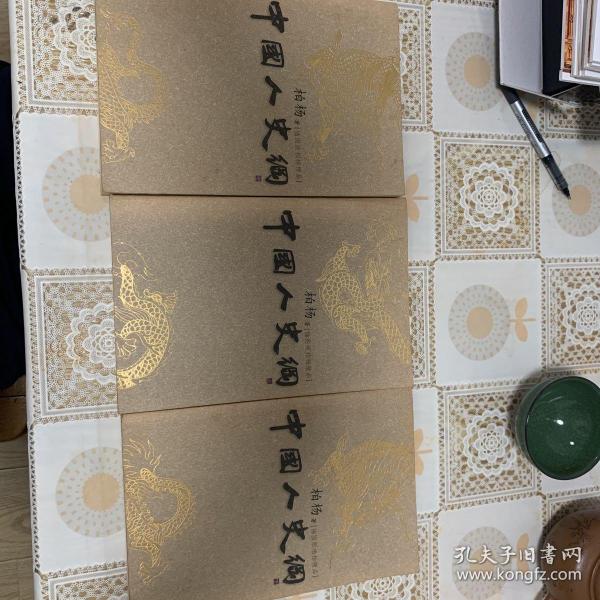 中國人史綱
柏杨 著
中國人史綱
柏杨 著
中國人史綱
柏杨 著
孔夫子旧書网
www.kongfz.com